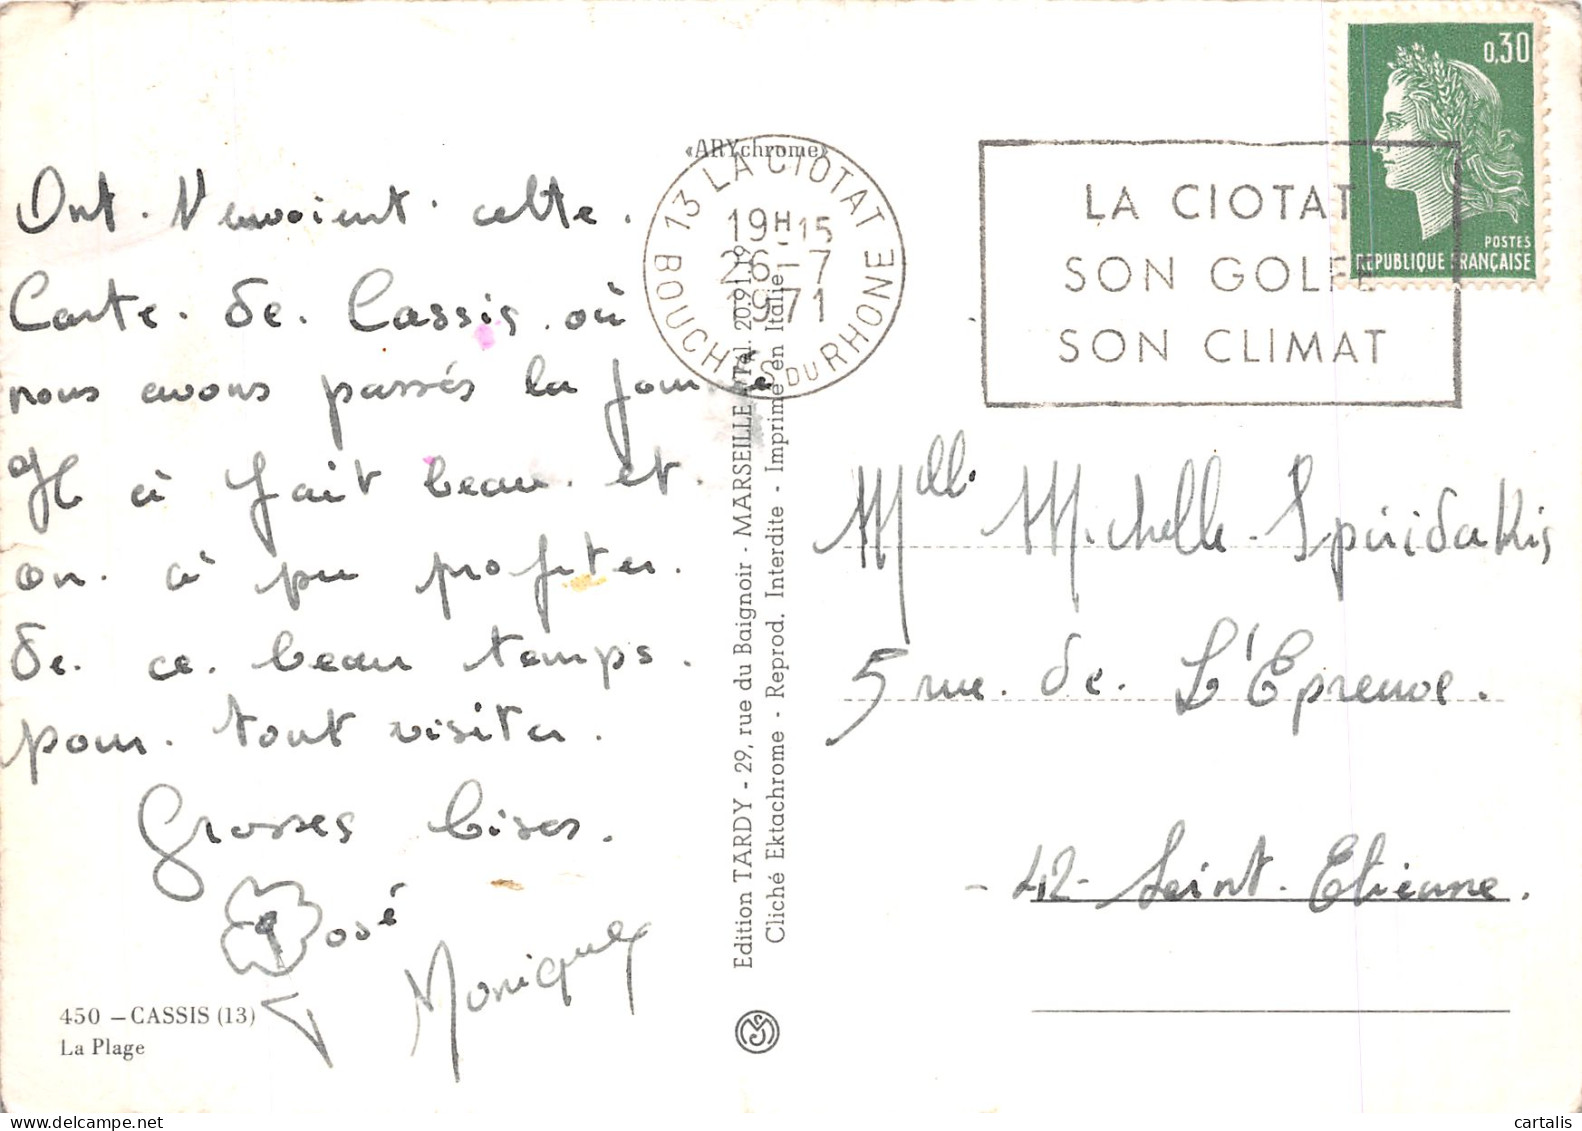 Ont. T'envoient. cette.
Carte. de. Cassis. où
nous avons passés la journée
Il à fait beau. et.
on. à pu profiter.
de. ce. beau temps.
pour. tout visiter.
Grosses bises.
José
Monique
450 – CASSIS (13)
La Plage
«ARYchrome»
13 LA CIOTAT
19H15
26–7
1971
BOUCHES DU RHONE
Edition TARDY - 29, rue du Baignoir - MARSEILLE - Tél. 20.91.19
Cliché Ektachrome - Reprod. Interdite - Imprimé en Italie
LA CIOTAT
SON GOLFE
SON CLIMAT
0,30
POSTES
REPUBLIQUE FRANÇAISE
Melle. Michelle. Spiridakis
5 rue. de. L'Epreuve.
- 42 - Saint. Etienne.
cartalis